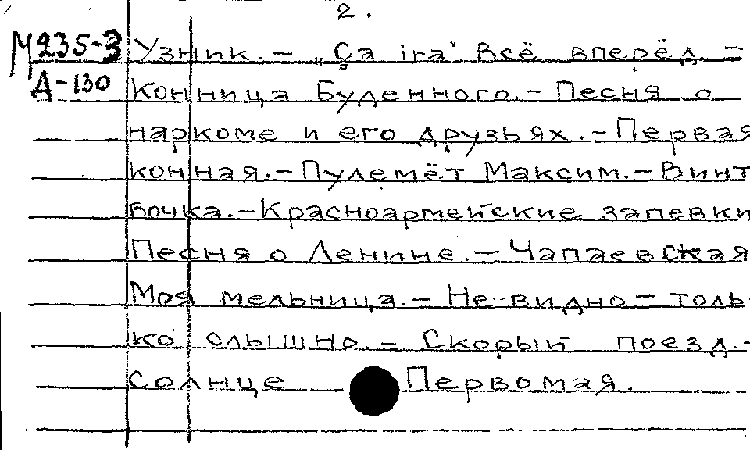 2.
М235-3 Узник. – „Ça ira" Всё вперёд. –
Д-130 Конница Буденного. – Песня о
наркоме и его друзьях. – Первая
конная. – Пулемёт Максим. – Винт
вочка. – Красноармейские запевки
Песня о Ленине. – Чапаевская
Моя мельница. – Не видно – толь-
ко слышно. – Скорый поезд. –
Солнце Первомая.